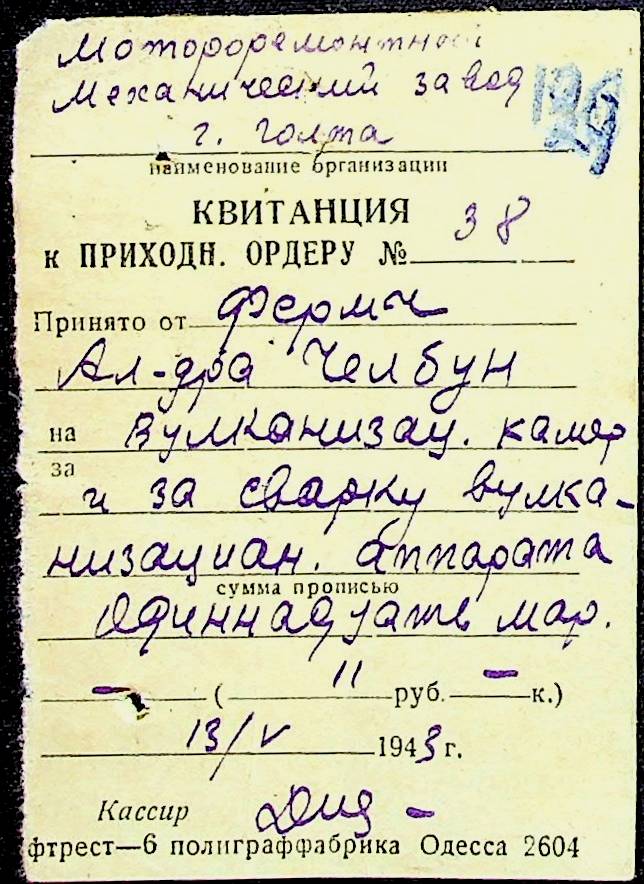 Мотороремонтной
Механический завод
г. Голта
129
наименование организации
КВИТАНЦИЯ
к ПРИХОДН. ОРДЕРУ № 38
Принято от Фермы
Ал-дра Челбун
на вулканизац. камер
за
и за сварку вулка-
низациан. аппарата
сумма прописью
Одиннадцать мар.
— ( 11 руб. — к.)
13/V 1943 г.
Кассир
фтрест—6 полиграффабрика Одесса 2604